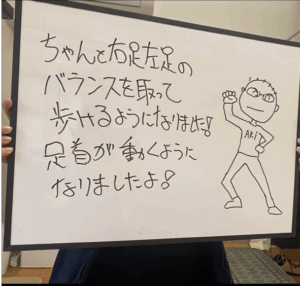 ちゃんと右足左足の
バランスを取って
歩けるようになりました!
足首が動くように
なりましたよ!
AKI